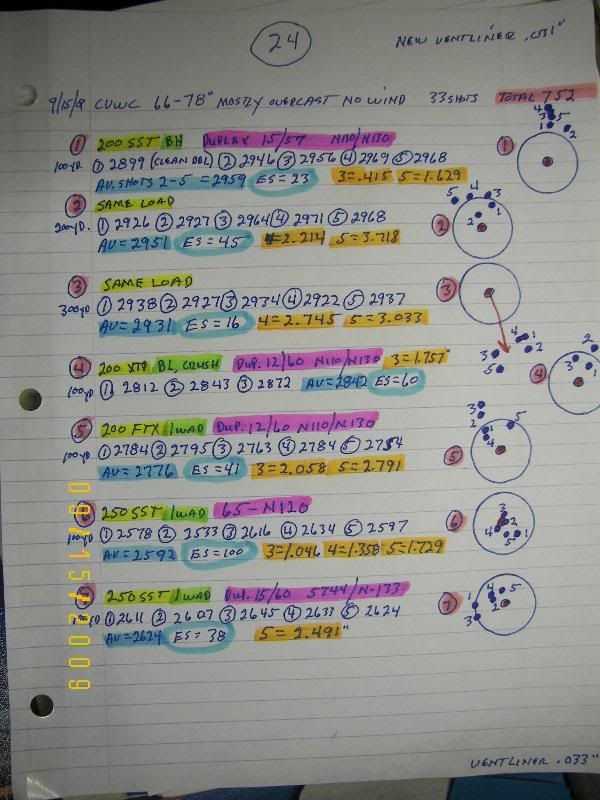 24
NEW VENTLINER .031"
9/15/9 CVWC 66-78° MOSTLY OVERCAST NO WIND 33 SHOTS TOTAL 752
1 200 SST BH DUPLEX 15/57 N110/N130
100YD. 1 2899 (CLEAN BBL) 2 2946 3 2956 4 2969 5 2968
AV. SHOTS 2-5 = 2959 ES = 23 3 = .415 5 = 1.629
2 SAME LOAD
200YD. 1 2926 2 2927 3 2964 4 2971 5 2968
AV = 2951 ES = 45 4 = 2.214 5 = 3.718
3 SAME LOAD
300YD 1 2938 2 2927 3 2934 4 2922 5 2937
AV = 2931 ES = 16 4 = 2.745 5 = 3.033
4 200 XTP BL, CRUSH DUP. 12/60 N110/N130 3 = 1.757"
100YD 1 2812 2 2843 3 2872 AV = 2842 ES = 60
5 200 FTX 1 WAD DUP. 12/60 N110/N130
100YD 1 2784 2 2795 3 2763 4 2784 5 2754
AV = 2776 ES = 41 3 = 2.058 5 = 2.791
6 250 SST 1 WAD 65 - N120
100YD 1 2578 2 2533 3 2616 4 2634 5 2597
AV = 2592 ES = 100 3 = 1.046 4 = 1.358 5 = 1.729
7 250 SST 1 WAD DUP. 15/60 5744/N-133
100YD 1 2611 2 2607 3 2645 4 2633 5 2624
AV = 2624 ES = 38 5 = 2.491"
VENTLINER .033"
1
4
3 5
1 2
2
5 4 3
1
2
3
4 1
2
3
5
4
2
3 1
5
3
2
5
1
4
6
3
2
4
5 1
7
4 5
1
2
3
09/15/2009